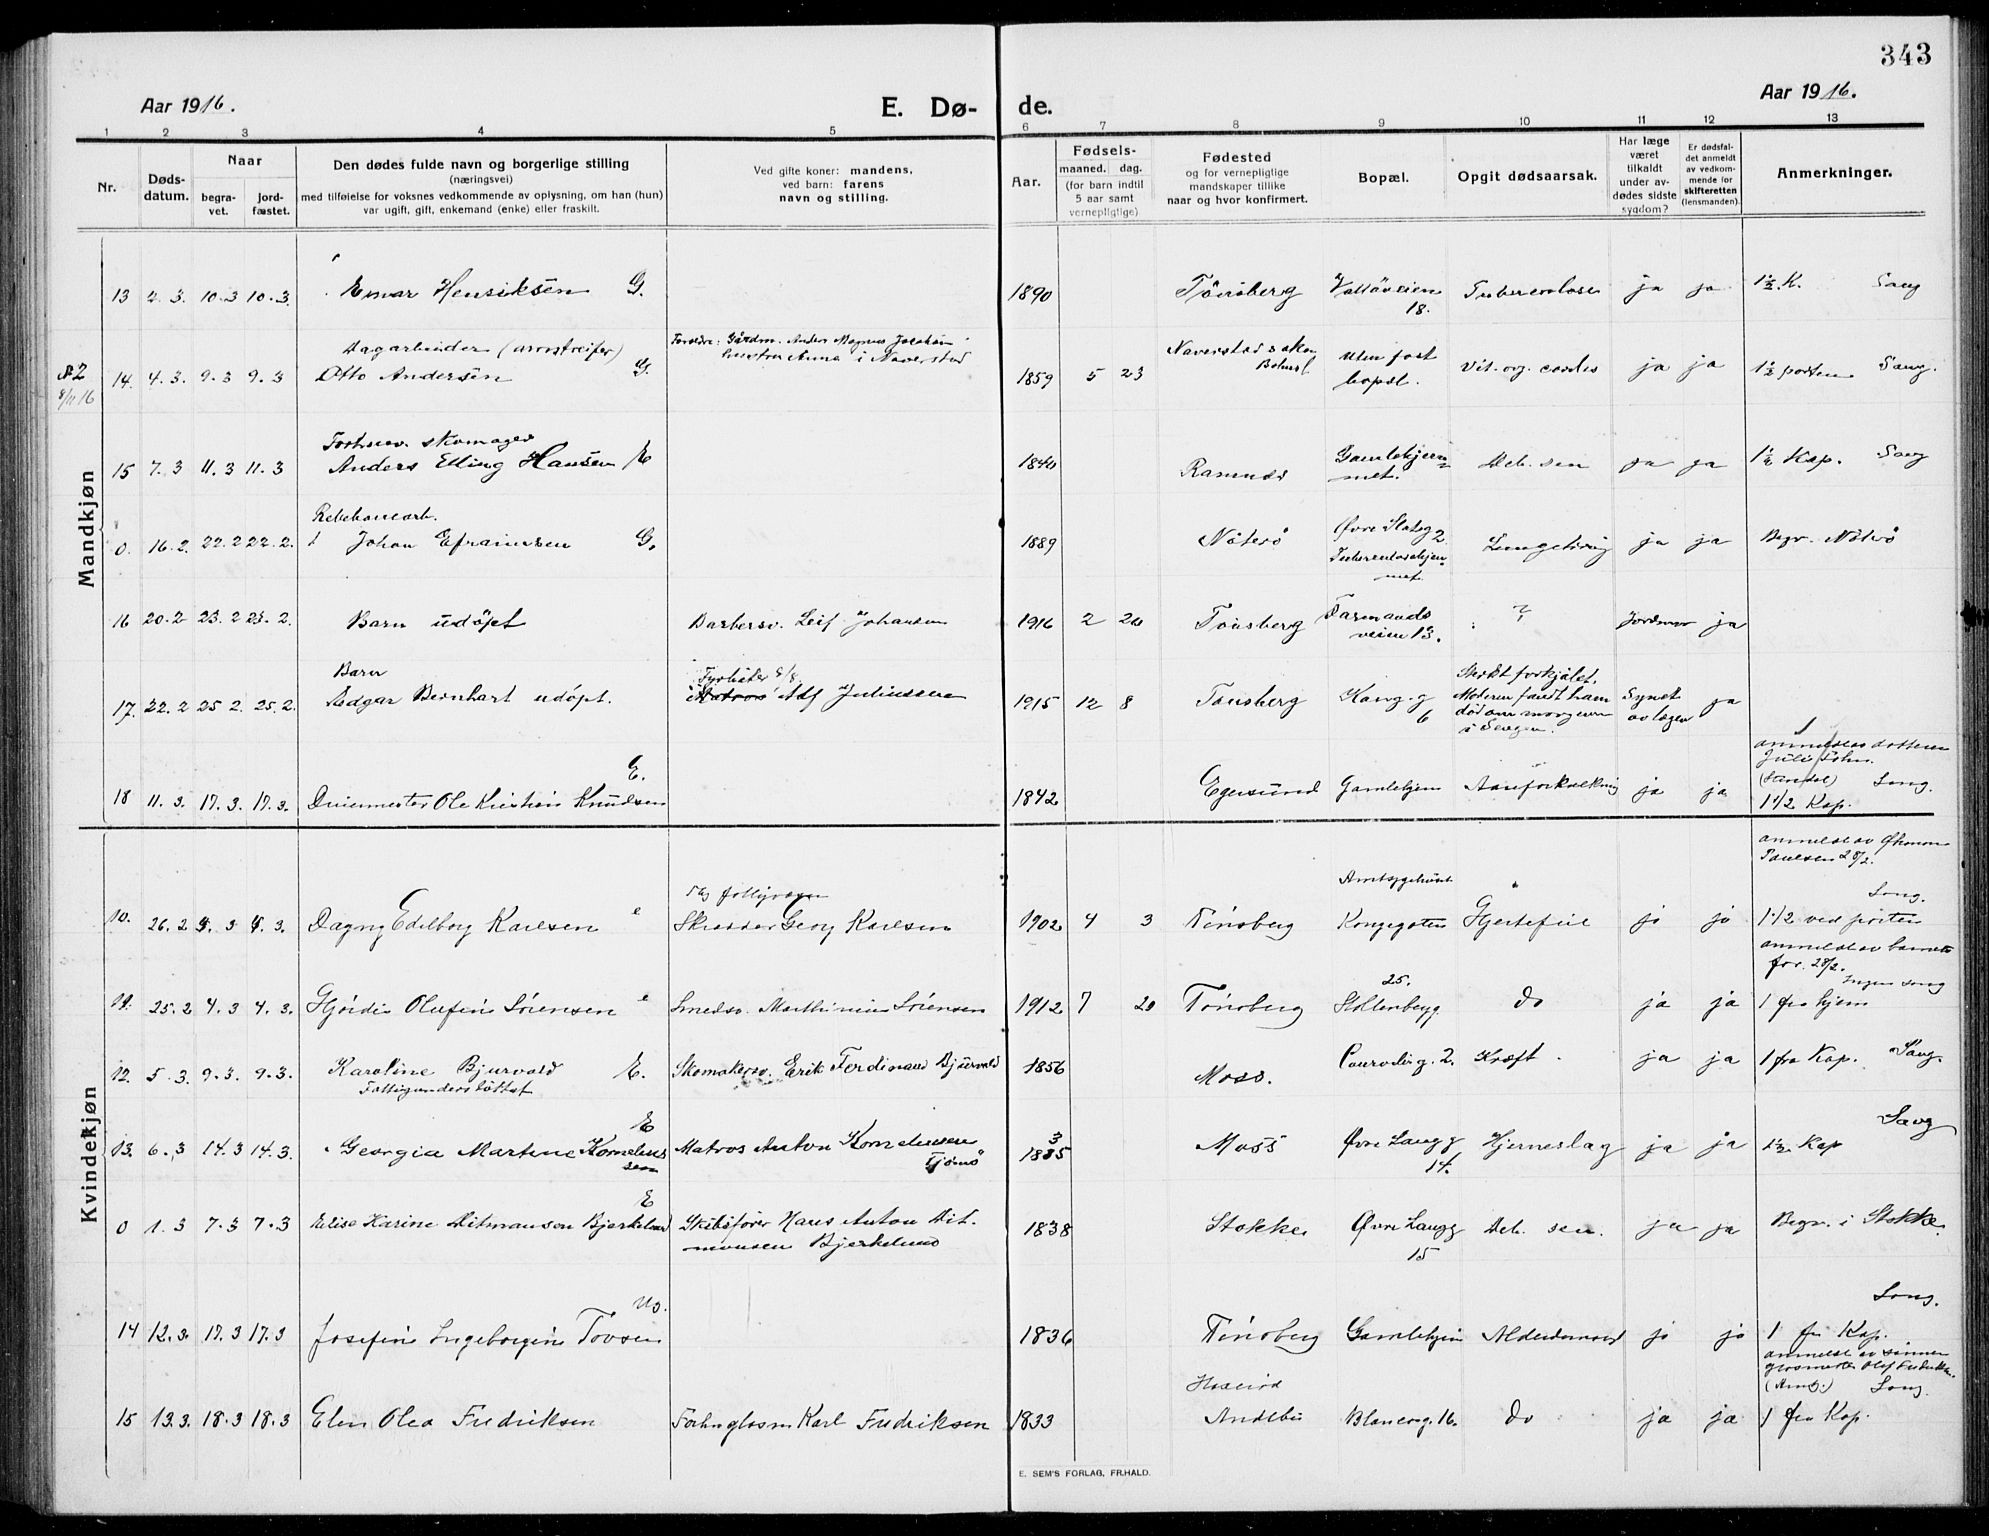 343
Aar 1916.
E. Dø-
de.
Aar 1916.
1 2 3 4 5 6 7 8 9 10 11 12 13
Nr.
Døds-
datum.
Naar
begra-
vet.
jord-
fæstet.
Den dødes fulde navn og borgerlige stilling
(næringsvei)
med tilføielse for voksnes vedkommende av oplysning, om han (hun)
var ugift, gift, enkemand (enke) eller fraskilt.
Ved gifte koner: mandens,
ved barn: farens
navn og stilling.
Aar.
Fødsels-
maaned. dag.
(for barn indtil
5 aar samt
vernepligtige)
Fødested
og for vernepligtige
mandskaper tillike
naar og hvor konfirmert.
Bopæl.
Opgit dødsaarsak.
Har læge
været
tilkaldt
under av-
dødes sidste
sygdom?
Er dødsfal-
det anmeldt
av vedkom-
mende for
skifteretten
(lensmanden).
Anmerkninger.
Mandkjøn
13 2.3. 10.3 10.3. Einar Henriksen G. 1890 Tönsberg Valløveien 18. Tuberculose ja ja 1½ K. Sang
№2
8/11 16
Dagarbeider (arrestreifer)
14. 4.3. 9.3 9.3 Otto Andersen G.
Forældre: Gårdm. Anders Magnus Jacobsen
hustru Anna i Naverstad
1859 5 23 Naverstad sokn Bohusl. Uten fast bopæl. Vit. org. cordis ja ja 1½ porten Sang.
Forhenv. skomager
15 7.3 11.3 11.3 Anders Elling Hansen E 1840 Ramnes Gamlehjemmet. Deb. sen ja ja 1½ Kap. Sang
Rebebanearb.
0. 16.2. 22.2 22.2. Johan Efraimsen G. 1889 Nöterö Øvre Slotsg 2 Tuberculosehjemmet. ja ja Begr. Nöterö
16 20.2 23.2 23.2. Barn udöpt Barbersv. Leif Johansen 1916 2 20 Tönsberg Farmandsveien 13. ? Jordmor ja
Barn
17. 22.2 25.2. 25.2. Edgar Bernhart udöpt. Fyrbøter Matros Alf Juliussen 1915 12 8 Tönsberg Kong.g 6
Sterkt forkjølet.
Moderen fandt ham
død om morgenen
i Sengen.
Synet av lægen ja
18 11.3. 17.3. 17.3. Ole Kristian Knudsen E. 1842 Egersund Gamlehjem Aareforkalkning ja ja
anmeldt av datteren
Sang.
1 1/2 Kap.
Kvindekjøn
10. 26.2 4.3 4.3. Dagny Edelborg Karlsen e Skrædder Georg Karlsen 1902 4 3 Tönsberg Kongegaten Hjertefeil ja ja
anmeldt av Økonom
Paulsen 28/2.
Sang.
1 1/2 ved porten
11. 25.2 4.3 4.3. Hjördis Olufine Sörensen e Smedsv. Marthinius Sörensen 1912 7 20 Tönsberg 25. Stoltenbergg. do ja ja
anmeldt av barnets
far. 28/2.
Ingen sang
1 fra hjem
12. 5.3. 9.3. 9.3. Karoline Bjurvald E. Skomakersv. Erik Ferdinand Bjurvald 1856 Moss. Kræft ja ja 1 fra Kap. Sang.
Fattigunderstöttet
13. 6.3 14.3 14.3. Georgia Martine Korneliussen E Matros Anton Korneliussen Tjömö 1835 3 Moss Øvre Langg 14. Hjerneslag ja ja 1½ Kap Sang
0 1.3 7.3 7.3 Elise Karine Ditmansen Bjerkelund E Skibsfører Hans Anton Ditmansen Bjerkelund 1838 Stokke Øvre Langg 15 Deb. sen. ja ja Begr. i Stokke.
14 12.3. 17.3 17.3 Josefine Ingeborgine Tovsen Ug. 1836 Tönsberg Gamlehjem Alderdomssvd ja ja Sang. 1 fra Kap.
15 13.3. 18.3 18.3 Elen Olea Fredriksen Forh. glasm Karl Fredriksen 1833 Andebu 16. do ja ja
anmeldt av sönnen
glasmester Olaf Fredriksen
Sang.
1 fra Kap.
E. SEM'S FORLAG, FR.HALD.